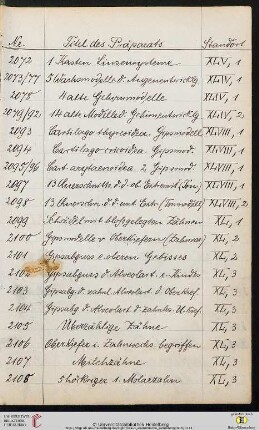 Nr. Titel des Präparats Standort
2072 1 Kasten Linsensysteme XLIV, 1
2073/77 5 Wachsmodelle d. Augenentwicklg XLIV, 1
2078 4 alte Gehirnmodelle XLIV, 1
2079/92 14 alte Modelle d. Gehirnentwicklg XLIV, 2
2093 Cartilago thyreoidea. Gipsmodell XLVIII, 1
2094 Cartilago cricoidea. Gipsmod. XLVIII, 1
2095/96 Cart. arytaenoidea 2 Gipsmod. XLVIII, 1
2097 13 XLVIII, 1
2098 13 XLVIII, 2
2099 Schädel mit bloßgelegten Zähnen XL, 1
2100 Gipsmodelle v. Oberkiefern (Zahnarzt XL, 2
2101 Gipsabguss e. oberen Gebisses XL, 2
2102 Gipsabguss d. Alveolart. e. Kindes XL, 3
2103 Gipsabg. d. zahnl. Alveolart. d. Oberkief. XL, 3
2104 Gipsabg. d. Alveolart. d. zahnlos. U.Kief. XL, 3
2105 Überzählige Zähne XL, 3
2106 Oberkiefer i. Zahnwechs. begriffen XL, 3
2107 Milchzähne XL, 3
2108 5 höckriger 1. Molarzahn XL, 3
© Universitätsbibliothek Heidelberg